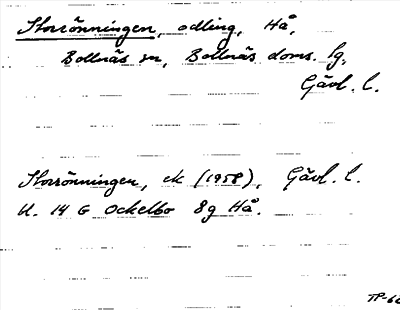 Storrönningen, odling, Hå,
Bollnäs sn, Bollnäs doms. lg,
Gävl. l.
Storrönningen, ek (1958), Gävl. l.
Bl. 14 G Ockelbo 8g Hå.
TP-60